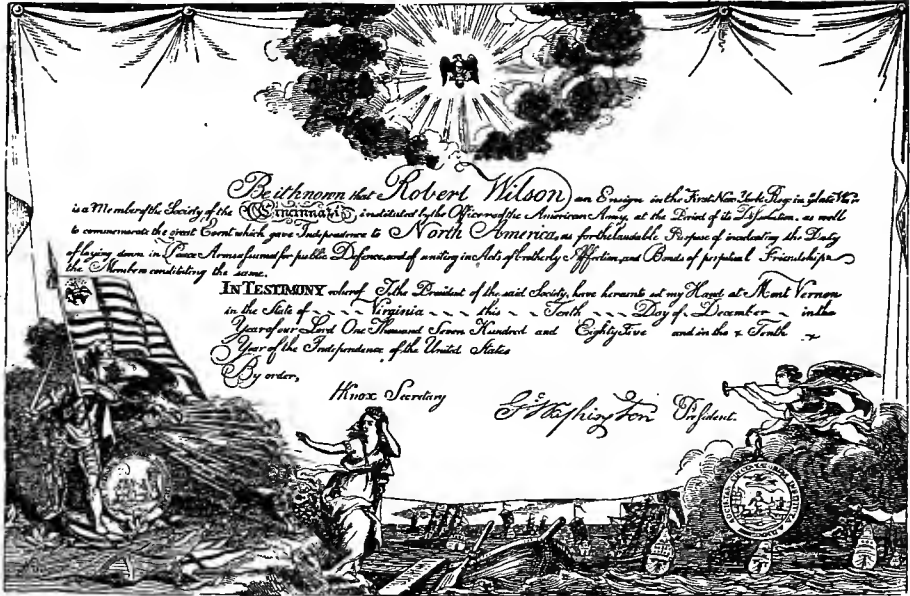 Be it known that Robert Wilson an Ensign in the First New York Reg. in ye late War
is a Member of the Society of the Cincinnati, instituted by the Officers of the American Army, at the Period of its Dissolution, as well
to commemorate the great Event which gave Independence to North America, as for the laudable Purpose of inculcating the Duty
of laying down in Peace Arms assumed for public Defence, and of uniting in Acts of brotherly Affection, and Bonds of perpetual Friendship
the Members constituting the same.
IN TESTIMONY whereof I, the President of the said Society, have hereunto set my Hand at Mont Vernon
in the State of Virginia this Tenth Day of December in the
Year of our Lord One Thousand Seven Hundred and Eighty Five and in the Tenth
Year of the Independence of the United States
By order,
HKnox Secretary
Go Washington President.